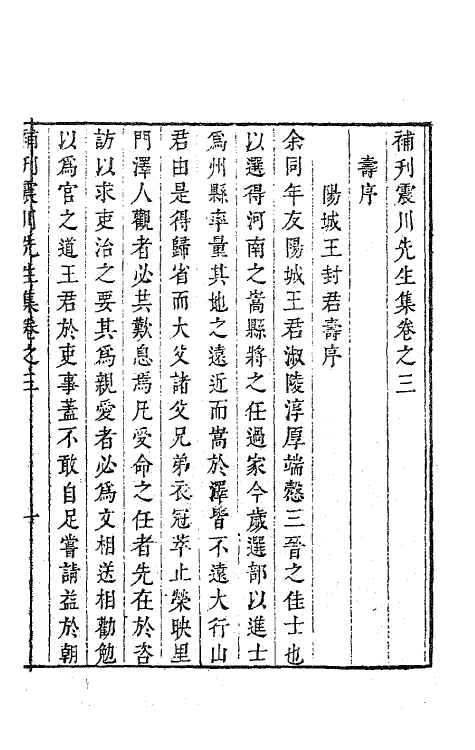 補刊震川先生集卷之三
壽序
陽城王封君壽序
余同年友陽城王君淑陵淳厚端慤三晉之佳士也
以選得河南之嵩縣將之任過家今歲選部以進士
爲州縣率量其地之遠近而嵩於澤皆不遠大行山
君由是得歸省而大父諸父兄弟衣冠萃止榮映里
門澤人觀者必共歎息焉凡受命之任者先在於咨
訪以求吏治之要其爲親愛者必爲文相送相勸勉
以爲官之道王君於吏事蓋不敢自足嘗請益於朝
補刊震川先生集卷之三 一